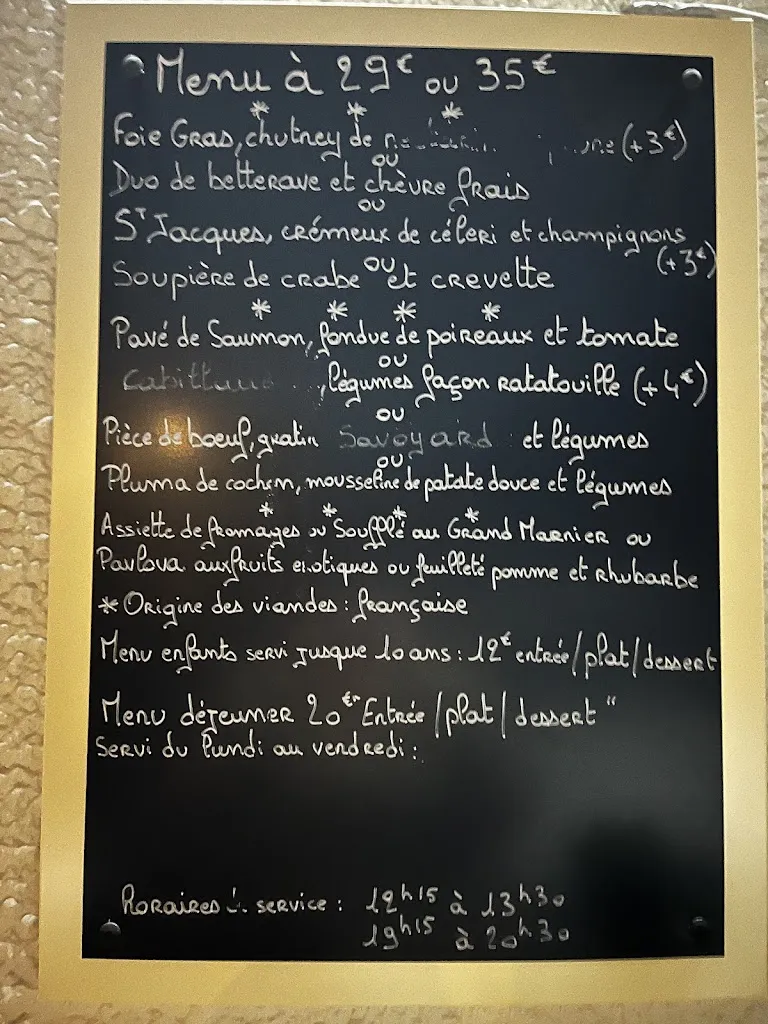 Menu à 29€ ou 35€
* * *
Foie Gras, chutney de (+3€)
ou
Duo de betterave et chèvre frais
ou
St Jacques, crémeux de céleri et champignons
(+3€)
ou
Soupière de crabe et crevette
* * * *
Pavé de Saumon, fondue de poireaux et tomate
ou
, légumes façon ratatouille (+4€)
ou
Pièce de boeuf, gratin Savoyard et légumes
ou
Pluma de cochon, mousseline de patate douce et légumes
* * * *
Assiette de fromages ou Soufflé au Grand Marnier ou
Pavlova aux fruits exotiques ou feuilleté pomme et rhubarbe
* Origine des viandes : française
Menu enfants servi jusque 10 ans : 12€ entrée/plat/dessert
Menu déjeuner 20 Entrée/plat/dessert "
Servi du lundi au vendredi :
Horaires service : 12h15 à 13h30
19h15 à 20h30